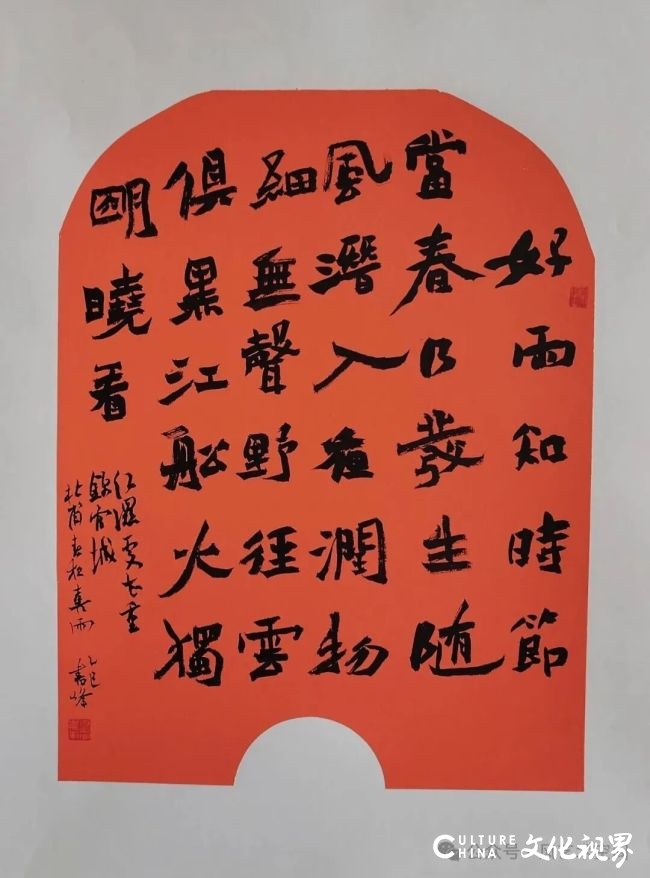 好雨知時節
當春乃發生随
風潛入夜潤物
細無聲野徑雲
俱黑江船火獨
明曉看
红濕處花重
錦官城
杜甫春夜喜雨 乙巳 峰
公众号
CULTURE
CHINA 文化视界